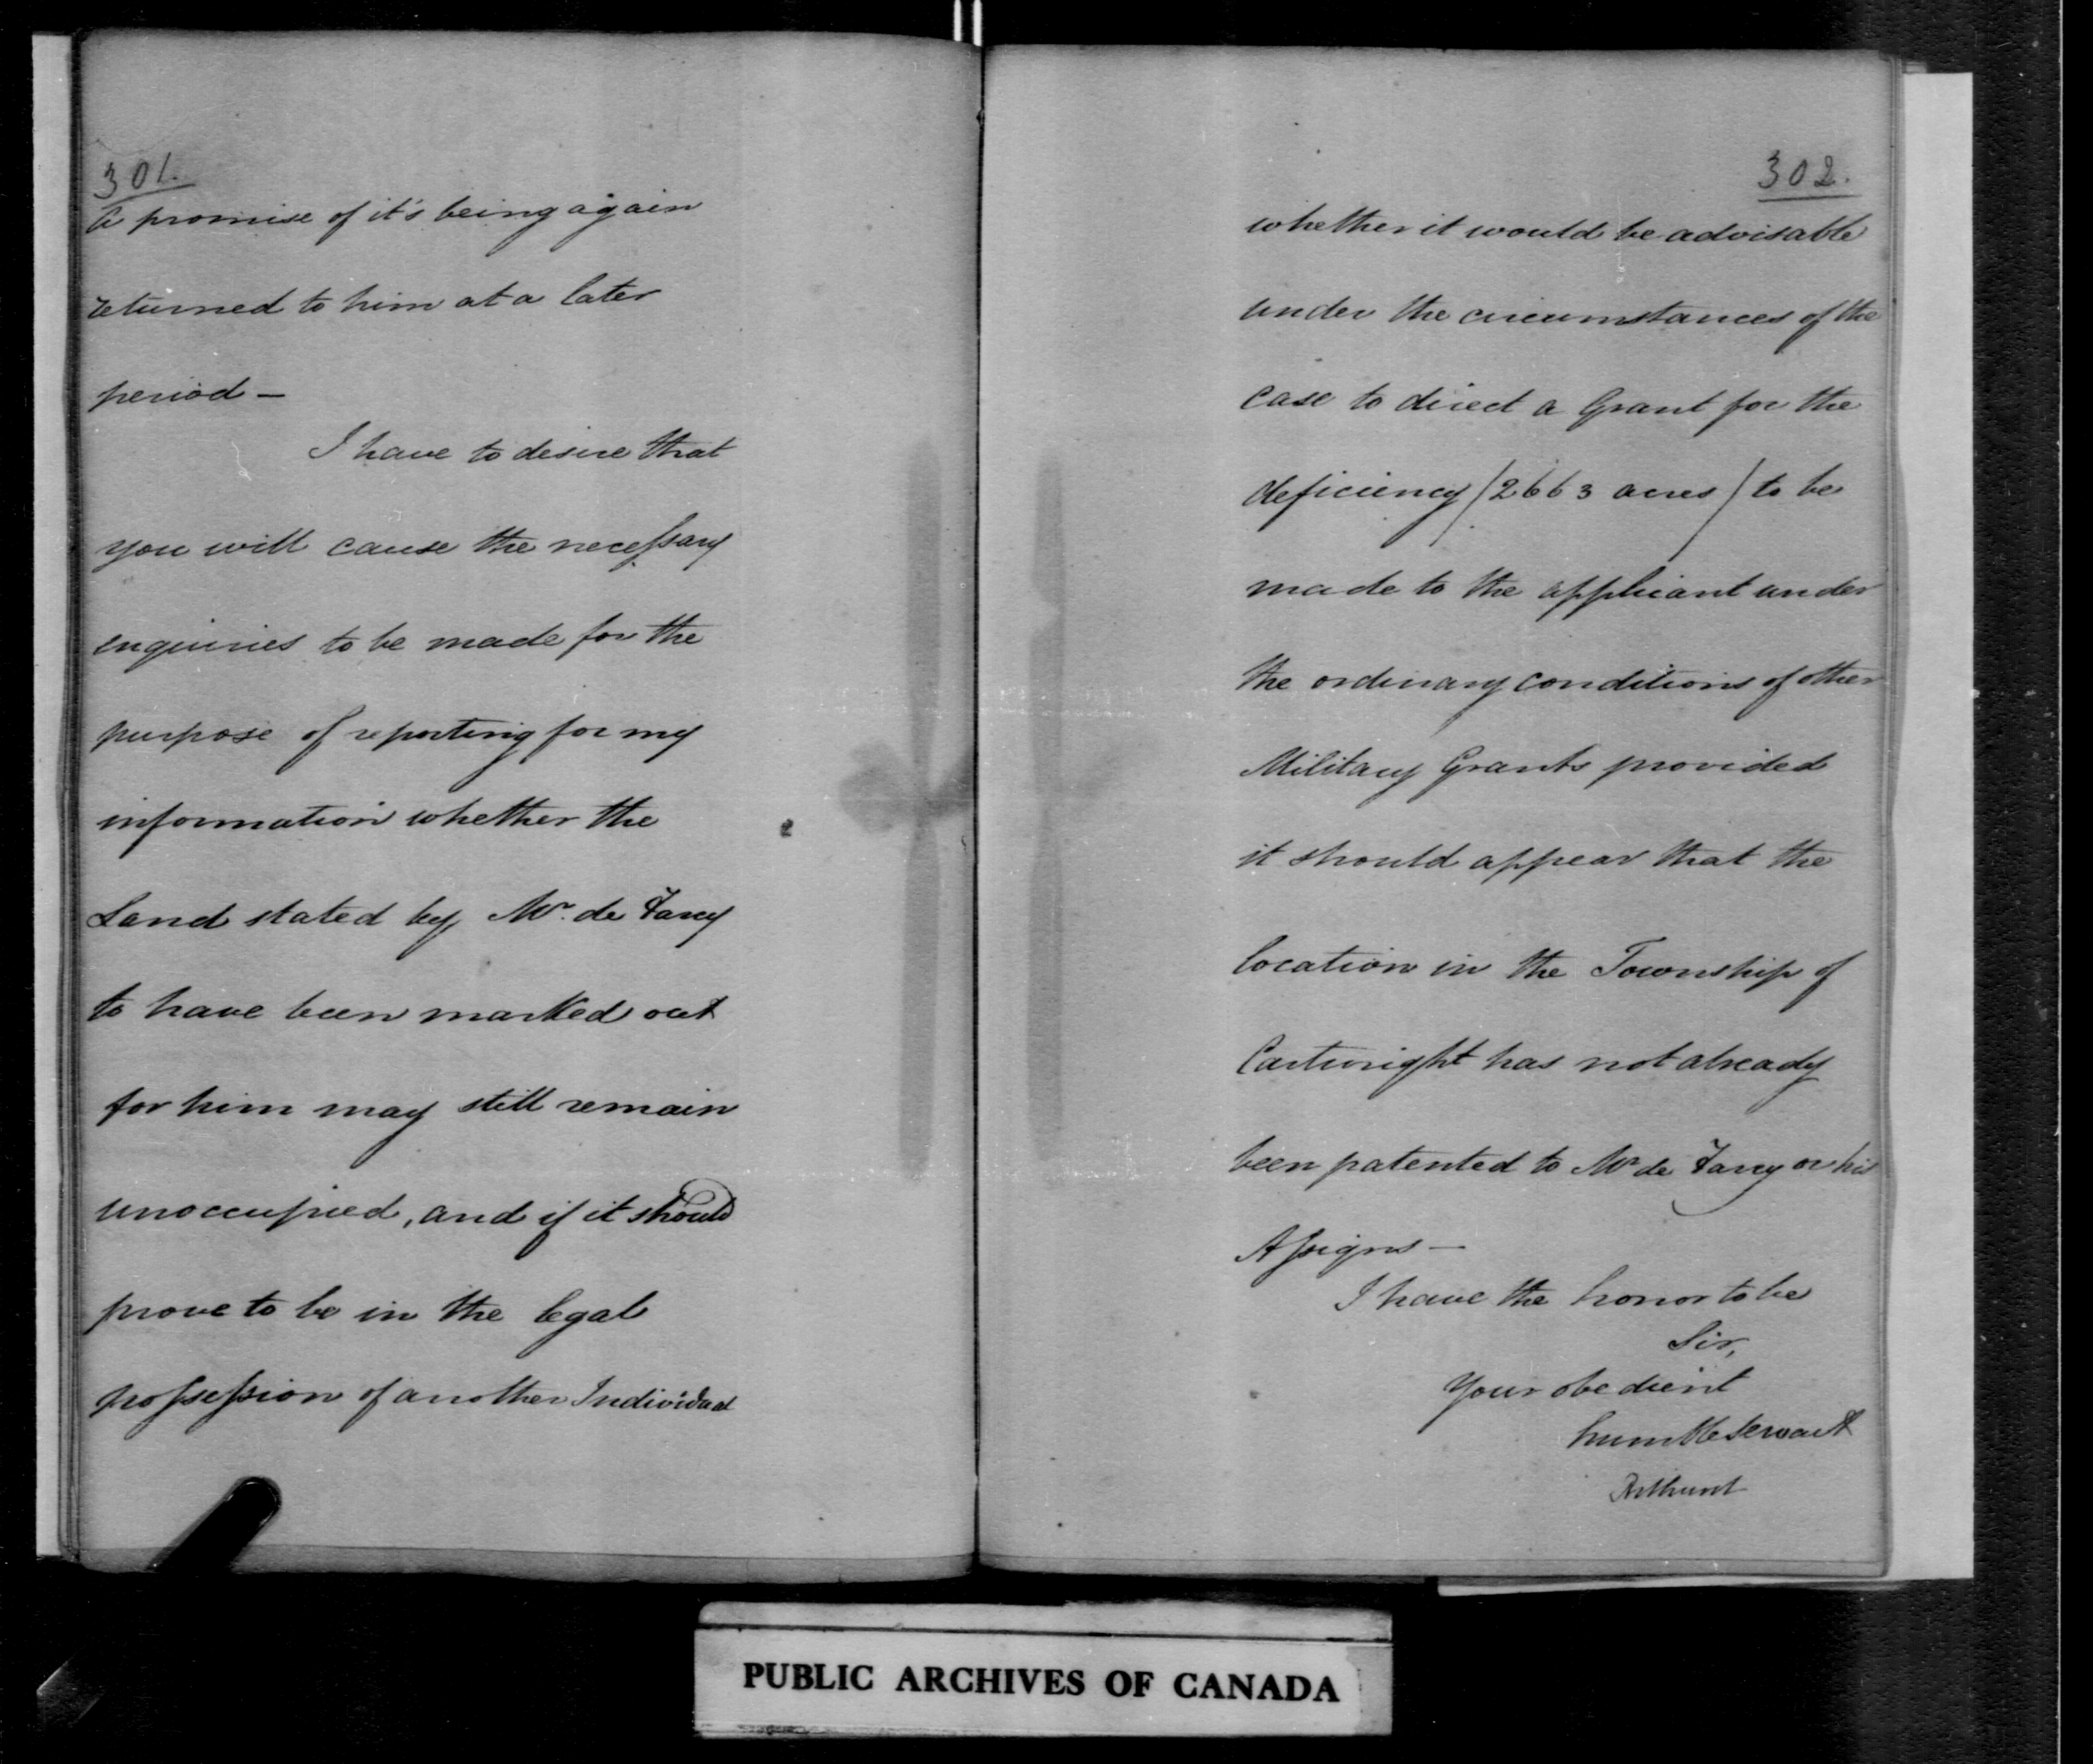 301.
a promise of it's being again
returned to him at a later
period —
I have to desire that
you will cause the necessary
enquiries to be made for the
purpose of reporting for my
information whether the
Land stated by Mr. de Farcy
to have been marked out
for him may still remain
unoccupied, and if it should
prove to be in the legal
possession of another Individual
302.
whether it would be advisable
under the circumstances of the
case to direct a Grant for the
deficiency (2663 acres) to be
made to the applicant under
the ordinary conditions of other
Military Grants provided
it should appear that the
location in the Township of
Cartwright has not already
been patented to Mr de Farcy or his
Assigns —
I have the honor to be
Sir,
Your obedient
humble servant
Bathurst
PUBLIC ARCHIVES OF CANADA